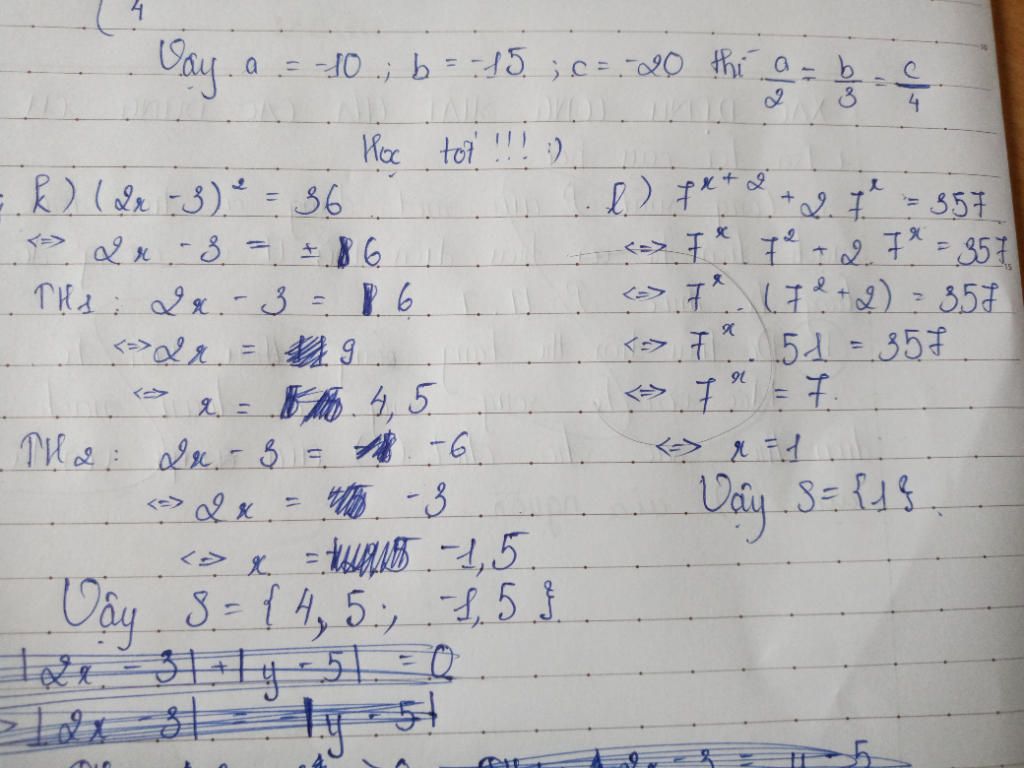 4
Vậy a = -10 ; b = -15 ; c = -20 thì a/2 = b/3 = c/4
Học tốt !!! :)
k) (2x - 3)² = 36
<=> 2x - 3 = ± 6
TH1: 2x - 3 = 6
<=> 2x = 9
<=> x = 4,5
TH2: 2x - 3 = -6
<=> 2x = -3
<=> x = -1,5
Vậy S = {4,5 ; -1,5}
l) 7^(x+2) + 2 . 7^x = 357
<=> 7^x . 7² + 2 . 7^x = 357
<=> 7^x . (7² + 2) = 357
<=> 7^x . 51 = 357
<=> 7^x = 7
<=> x = 1
Vậy S = {1}.
|2x - 3| + |y - 5| = 0
|2x - 3| = -|y - 5|
2x - 3 = y - 5